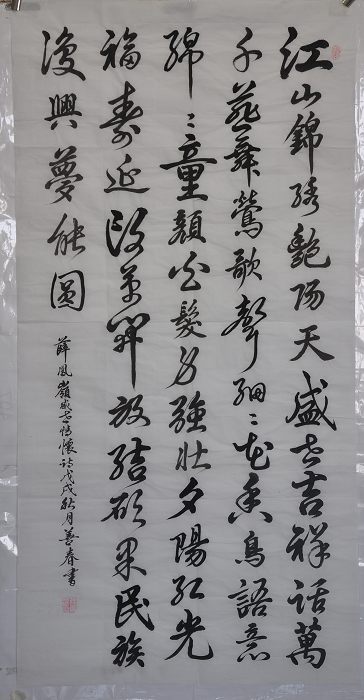 江山錦綉艷陽天盛世吉祥話萬
千燕舞鶯歌聲細〻花香鳥語意
綿〻童顏白髮身強壯夕陽紅光
福壽延改革開放結碩果民族
復興夢能圓
薛鳳嶺盛世情懷詩戊戌秋月善春書